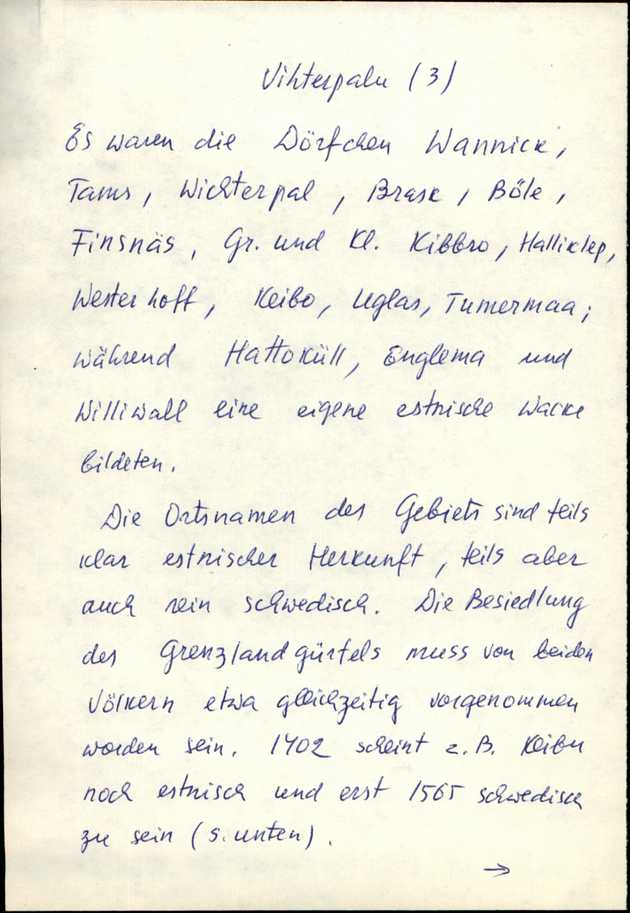 Vihterpalu (3)
Es waren die Dörfchen Wannick,
Tams, Wichterpal, Brask, Böle,
Finsnäs, Gr. und Kl. Kibbro, Halliklep,
Westerhoff, Keibo, Uglas, Tumermaa;
während Hattoküll, Englema und
Williwall eine eigene estnische Wacke
bildeten.
Die Ortsnamen des Gebiets sind teils
klar estnischer Herkunft, teils aber
auch rein schwedisch. Die Besiedlung
des Grenzlandgürtels muss von beiden
Völkern etwa gleichzeitig vorgenommen
worden sein. 1402 scheint z.B. Keibu
noch estnisch und erst 1565 schwedisch
zu sein (s. unten).
→